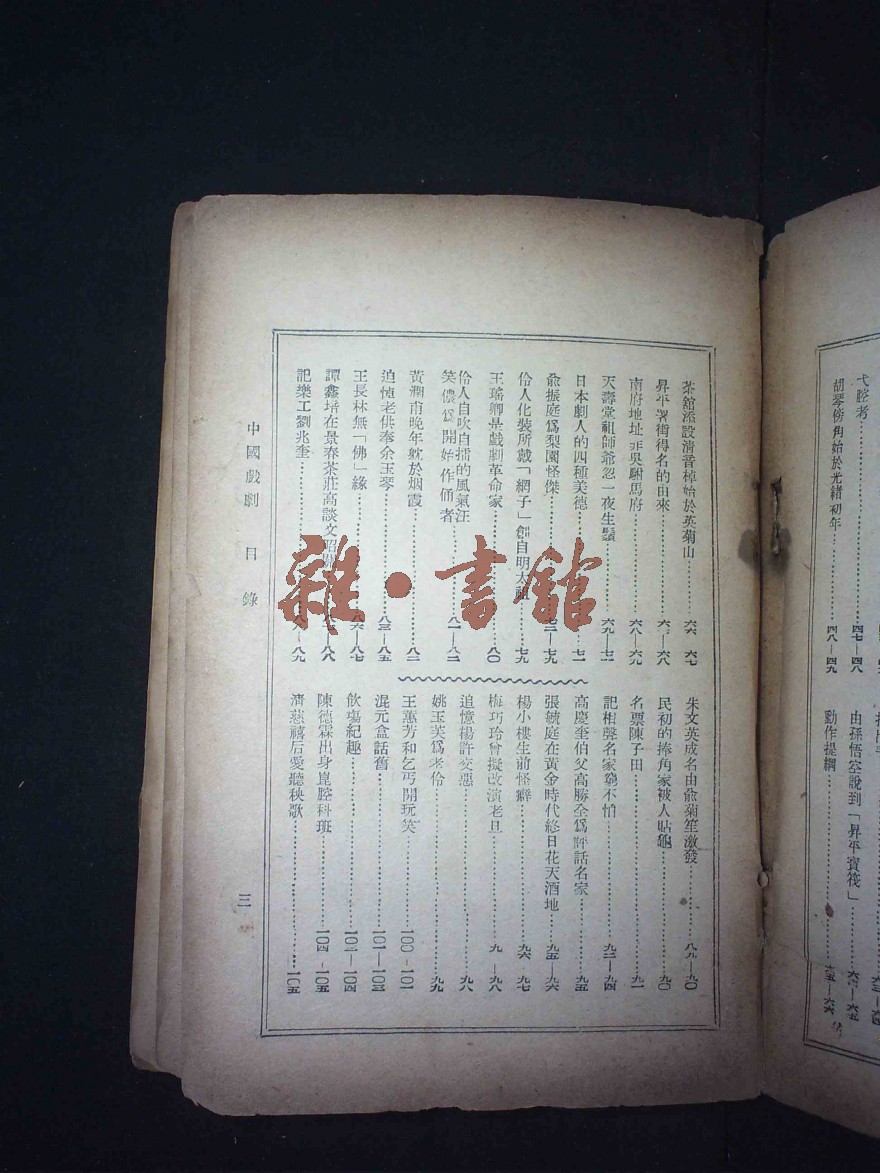 弋腔考⋯⋯四七—四八
胡琴傍角始於光緒初年⋯⋯四八—四九
由孫悟空說到「昇平寶筏」⋯⋯六四—六五
動作提綱⋯⋯六五—六六
茶館添設清音棹始於英菊山⋯⋯六六—六七
昇平署街得名的由來⋯⋯六七—六八
南府地址非吳駙馬府⋯⋯六八—六九
天壽堂祖師爺忽一夜生鬚⋯⋯六九—七一
日本劇人的四種美德⋯⋯七一
俞振庭爲梨園怪傑⋯⋯七二—七九
伶人化裝所戴「網子」創自明太祖⋯⋯七九
王瑤卿是戲劇革命家⋯⋯八〇
伶人自吹自擂的風氣汪
笑儂爲開始作俑者⋯⋯八一—八二
黃潤甫晚年躭於烟霞⋯⋯八二
追悼老供奉余玉琴⋯⋯八三—八五
王長林無「佛」緣⋯⋯八六—八七
譚鑫培在景春茶莊高談文昭關⋯⋯八八
記樂工劉兆奎⋯⋯八九
朱文英成名由俞菊笙激發⋯⋯八九—九〇
民初的捧角家被人貼龜⋯⋯九〇
名票陳子田⋯⋯九一
記相聲名家窮不怕⋯⋯九二—九四
高慶奎伯父高勝全爲評話名家⋯⋯九五
張毓庭在黃金時代終日花天酒地⋯⋯九五—九六
楊小樓生前怪癖⋯⋯九六—九七
梅巧玲曾擬改演老旦⋯⋯九七—九八
追憶楊許交惡⋯⋯九八
姚玉芙爲老伶⋯⋯九九
王蕙芳和乞丐開玩笑⋯⋯一〇〇—一〇一
混元盒話舊⋯⋯一〇一—一〇三
飲場紀趣⋯⋯一〇三—一〇四
陳德霖出身崑腔科班⋯⋯一〇四—一〇五
濟慈禧后愛聽秧歌⋯⋯一〇五
中國戲劇 目錄
三
雜·書館